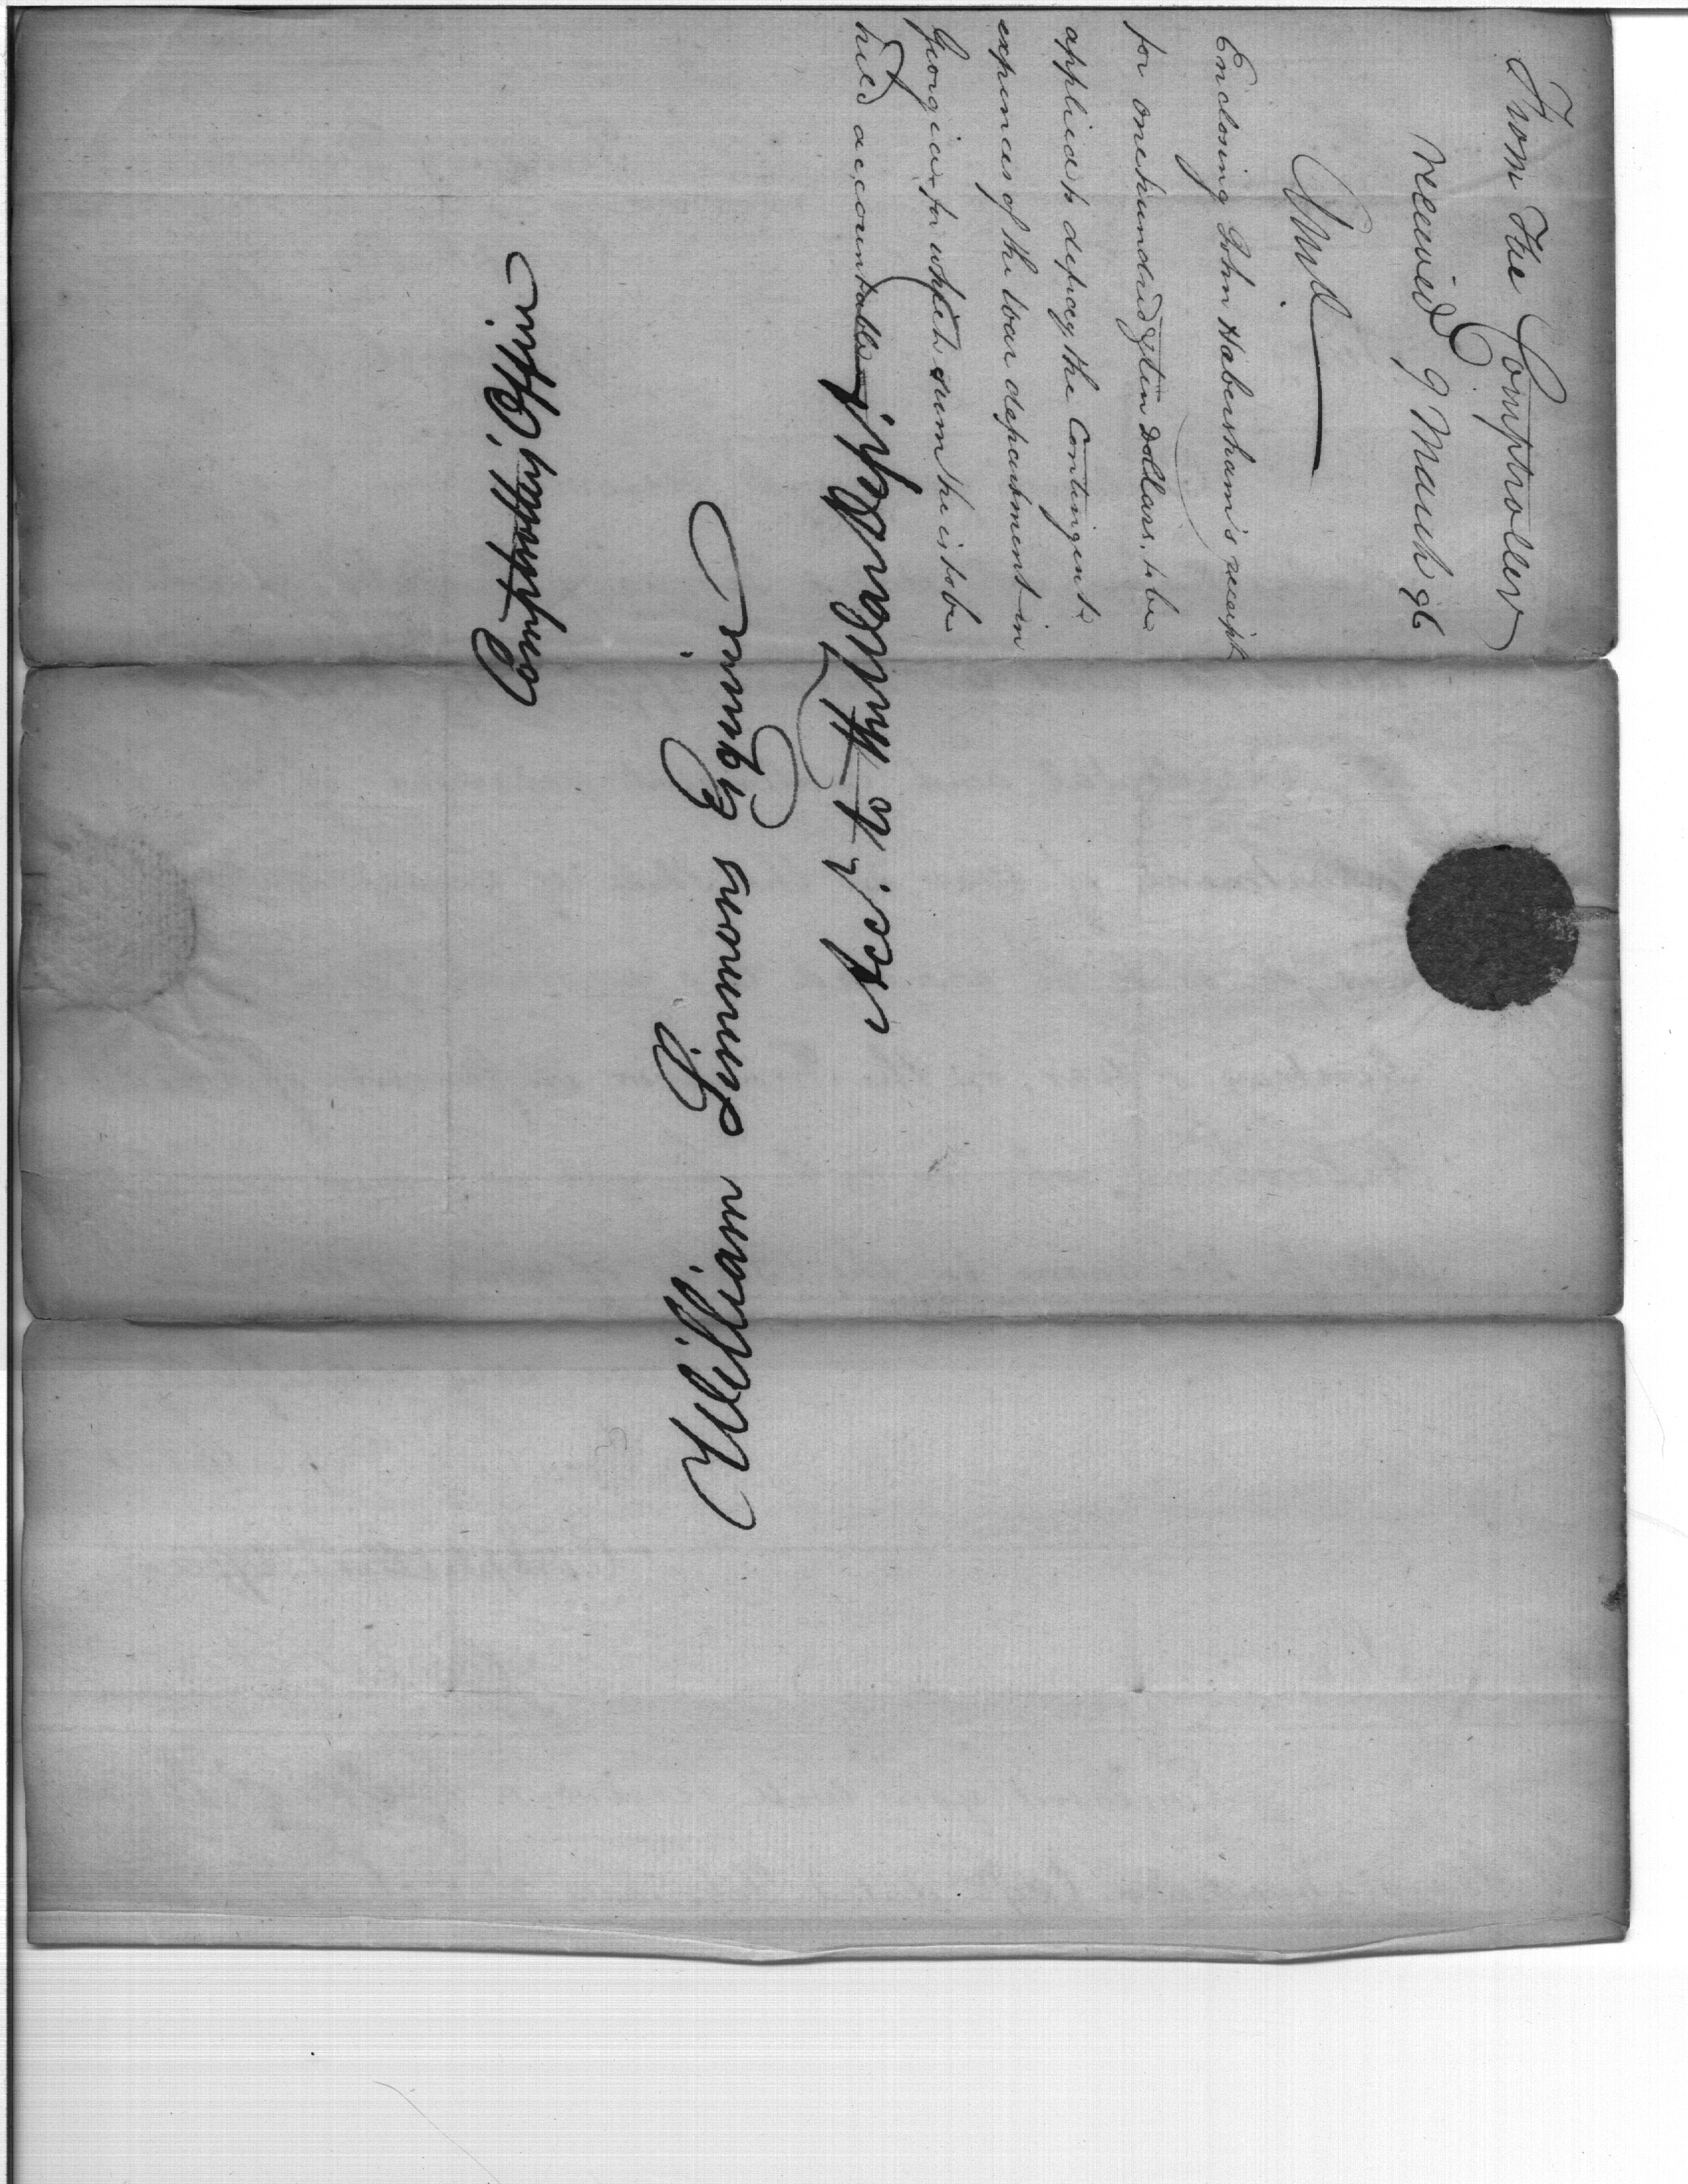 From The Comptroller
received 9 March 96
Enclosing John Habersham's receipt
for one hundred & ten Dollars, to be
applied to defray the Contingent
expences of the War department in
Georgia for which sum he is to be
held accountable
Comptrollers Office
William Simmons Esquire
Acct. to the War Dept.